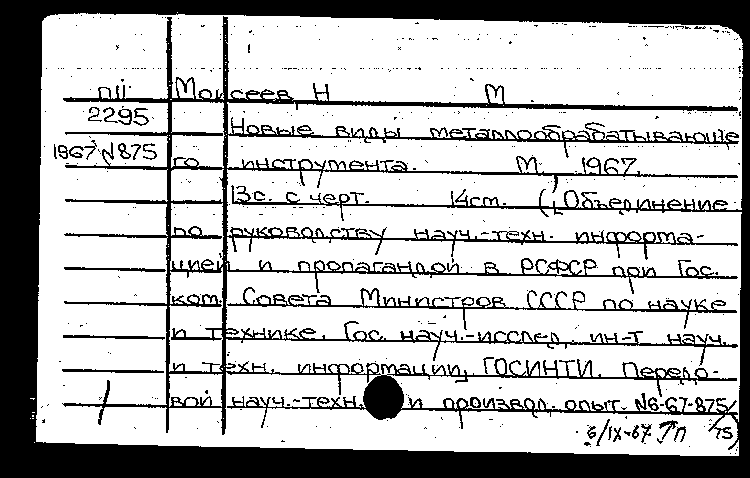 пii Моисеев, Н М
2295 Новые виды металлообрабатывающе
1967 №875 го инструмента. М., 1967.
13с. с черт. 14ст. (Объединение
по руководству науч.-техн. информа-
цией и пропагандой в РСФСР при Гос.
ком. Совета Министров СССР по науке
и технике. Гос. науч.-исслед. ин-т науч.
и техн. информации, ГОСИНТИ. Передо-
вой науч.-техн. и производ. опыт. №6-67-875/
6/IX-67 /75)